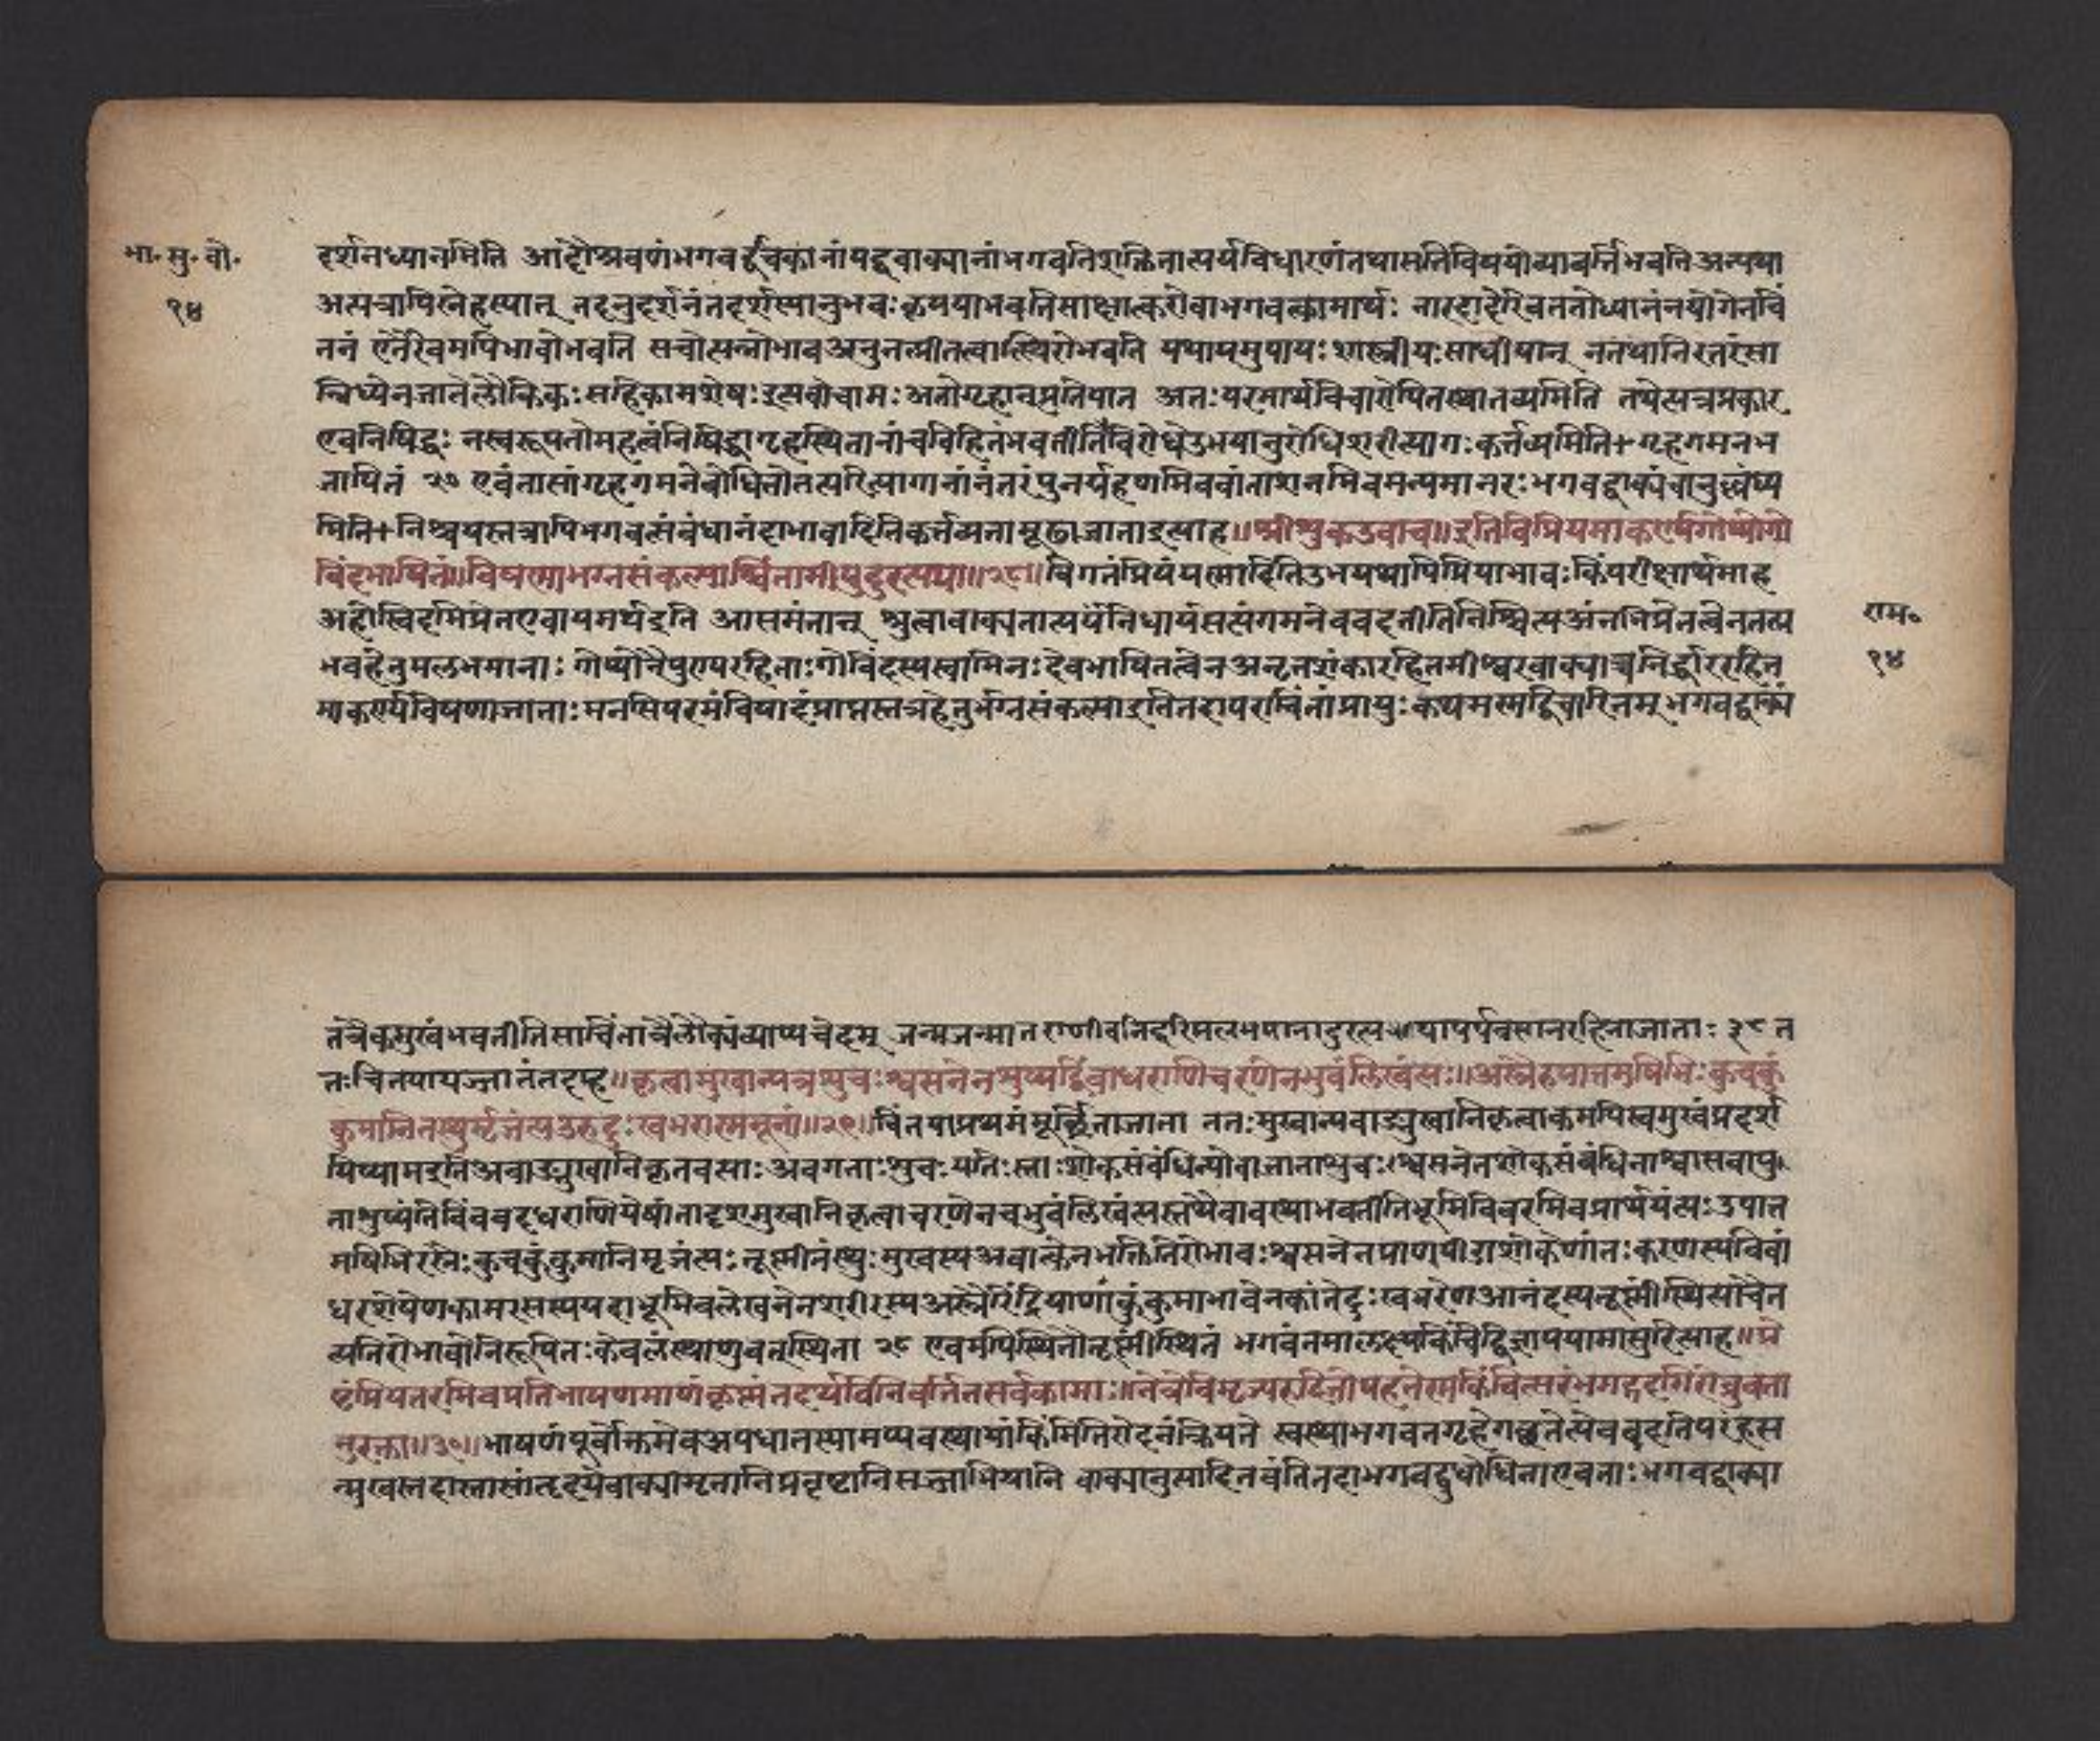 भा॰ सु॰ बो॰
१४
दर्शनध्यानमिति आदौश्रवणंभगवद्दूचकानांषद्ववाक्यानांभगवतिशक्तितात्पर्यविधारणंतथासतिविषयोव्यावर्त्तिभवतिअन्यथा
अत्यत्रापिस्नेहस्यात् तदनुदर्शनंतदर्शस्यानुभवः कृपयाभवतिसाक्षात्करोवाभगवत्कामार्थः नारदादेरिवततोध्यानंनयोगेनचिं
तनं एतैरेवमपिभावोभवति सचोत्पन्नोभावअनुनत्कीर्तत्वात्स्थिरोभवति यथायमुपायः शास्त्रीयः साधीयान् नतथानिरतरंसा
न्निध्येनजातेलौकिकः सहिकामशेषः इत्यवोचाम अतोगृहान्प्रतियात अतः परमार्थविचारोपिनस्थातव्यमिति तथेत्यत्रप्रकार
एवनिषिद्धः नस्वरूपतोमहत्वंनिषिद्धागृहस्थितानांचविहितंभवतीतिविरोधेउभयानुरोधिशरीरत्यागः कर्त्तव्यमिति+गृहगमनभ
जापितं २७ एवंतासांगृहगमनेबोधितोतत्परित्यागानांनंतरंपुनर्ग्रहणमिववांताशनमिवमन्यमानरः भगवद्वाक्यंचानुल्लंघ्य
मिति+निश्चयस्तत्रापिभगवत्संबंधानंदाभावादितिकर्त्तव्यतामूढाजाताइत्याह॥श्रीशुकउवाच॥इतिविप्रियमाकर्ण्यगोप्योगो
विंदभाषितं॥विषण्णाभग्नसंकल्पाश्चिंतामापुदुरत्यया॥२८॥विगतंप्रियंयस्मादितिउभयथापिप्रियाभावः किंपरीक्षार्थमाह
अहोस्विदभिप्रेतएवायमर्थइति आसमंतात् श्रुत्वावाक्यतात्पर्यंनिधार्यसत्यंगमनेववदतीतिनिश्चित्यअंनभिप्रेतत्वेनतत्प्र
भवहेतुमलभमानाः गोप्योनैपुण्यरहिताः गोविंदस्यस्वामिनः देवभाषितत्वेनअनृतशंकारहितमीश्वरवाक्याच्चनिर्द्धाररहित
माकर्ण्यविषणाजाताः मनसिपरमंविषादंप्राप्तस्तत्रहेतुर्भग्नसंकल्पाइतितदापरमचिंतांप्रापुः कथमस्मद्विचारितम् भगवद्वाक्यं
राम॰
१४
तंचैकमुखंभवतीतिसाचिंतात्रैलोक्यंव्याप्यचेदम् जन्मजन्मांतराणीवनिदूरिमलभमानादुरत्ययापर्यवसानरहिताजाताः २८ त
तःचिंतयायज्जातंतदप्ह॥कृत्वामुखान्यवशुचः श्वसनेनशुष्यद्बिंबाधराणिचरणेनभुवंलिखंत्यः॥अस्त्रैरुपात्तमषिभिः कुचकुं
कुमानितस्थुर्मृजंत्यउरुदुः खभरास्मतूष्णीं॥२९॥चिंतयाप्रथमंमूर्च्छिताजाता ततः मुखान्यवाङ्मुखानिकृत्वाकमपिस्वमुखंप्रदर्श
यिष्यामइतिअवाङ्मुखानिकृतवत्यः अवगताः शुचः याभिः स्ताः शोकसंबंधिन्योवाजाताशुचः श्वसनेनशोकसंबंधिनाश्वासवायु
नाशुष्यंतिबिंबवदधराणियेषांतादृशमुखानिकृत्वाचरणेनचभुवंलिखंत्यस्तथैवावस्थाभवतीतिभूमिविवरमिवप्रार्थयंत्यः उपात्त
मषिभिरस्त्रैः कुचकुंकुमानिमृजंत्यः तूष्णींतस्थुः मुखस्यअवाक्त्वेनभक्तितिरोभावः श्वसनेनप्राणपीडाशोकेणांतः करणस्यबिंबां
धरशोषेणकामरसस्यपदाभूमिवलेखनेनशरीरस्यअस्त्रैरिंद्रियाणांकुंकुमाभावेनकांतेदुः खभरेणआनंदस्यतूष्णींस्थित्याचेत
न्यतिरोभावोनिरूपितः केवलंस्थाणुवत्स्थिता २९ एवमपिस्थितौतूष्णींस्थितं भगवंतमालक्ष्यकिंचिद्विज्ञापयामासुरित्याह॥प्रे
ष्टंप्रियतरमिवप्रतिभाषणमाणंकृष्णंतदर्थविनिवर्त्तितसर्वकामाः॥नेत्रेविमृज्यरुदितोपहतेस्मकिंचित्संरंभगद्गदगिरोब्रुवता
नुरक्ता॥३०॥भाषणंपूर्वोक्तमेवअपधानस्यामप्यवस्थायांकिमितिरोदनंक्रियते स्वस्थाभगवनगृहेगच्छतेत्येववदतिपरंहस
न्मुखस्तदास्तासांहृदयेवाक्यामृतानिप्रवृष्टानिसज्जाभियानि वाक्यानुसादिनवंतितदाभगवद्दुधोधिताएवताः भगवद्वाक्या